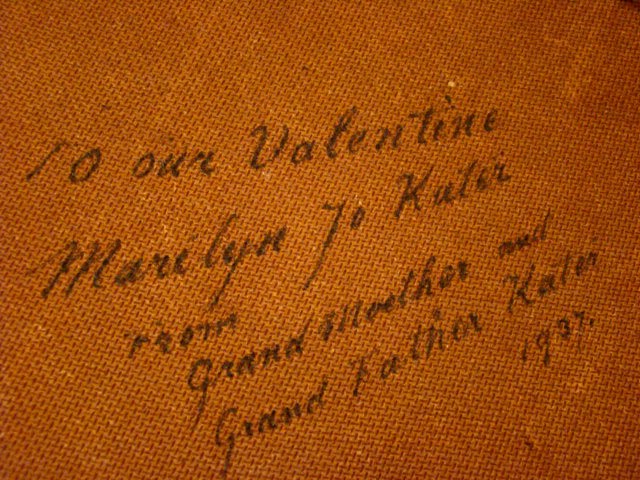 To our Valentine
Marilyn Jo Kuter
From
Grand Moether and
Grand Father Kuter
1937.